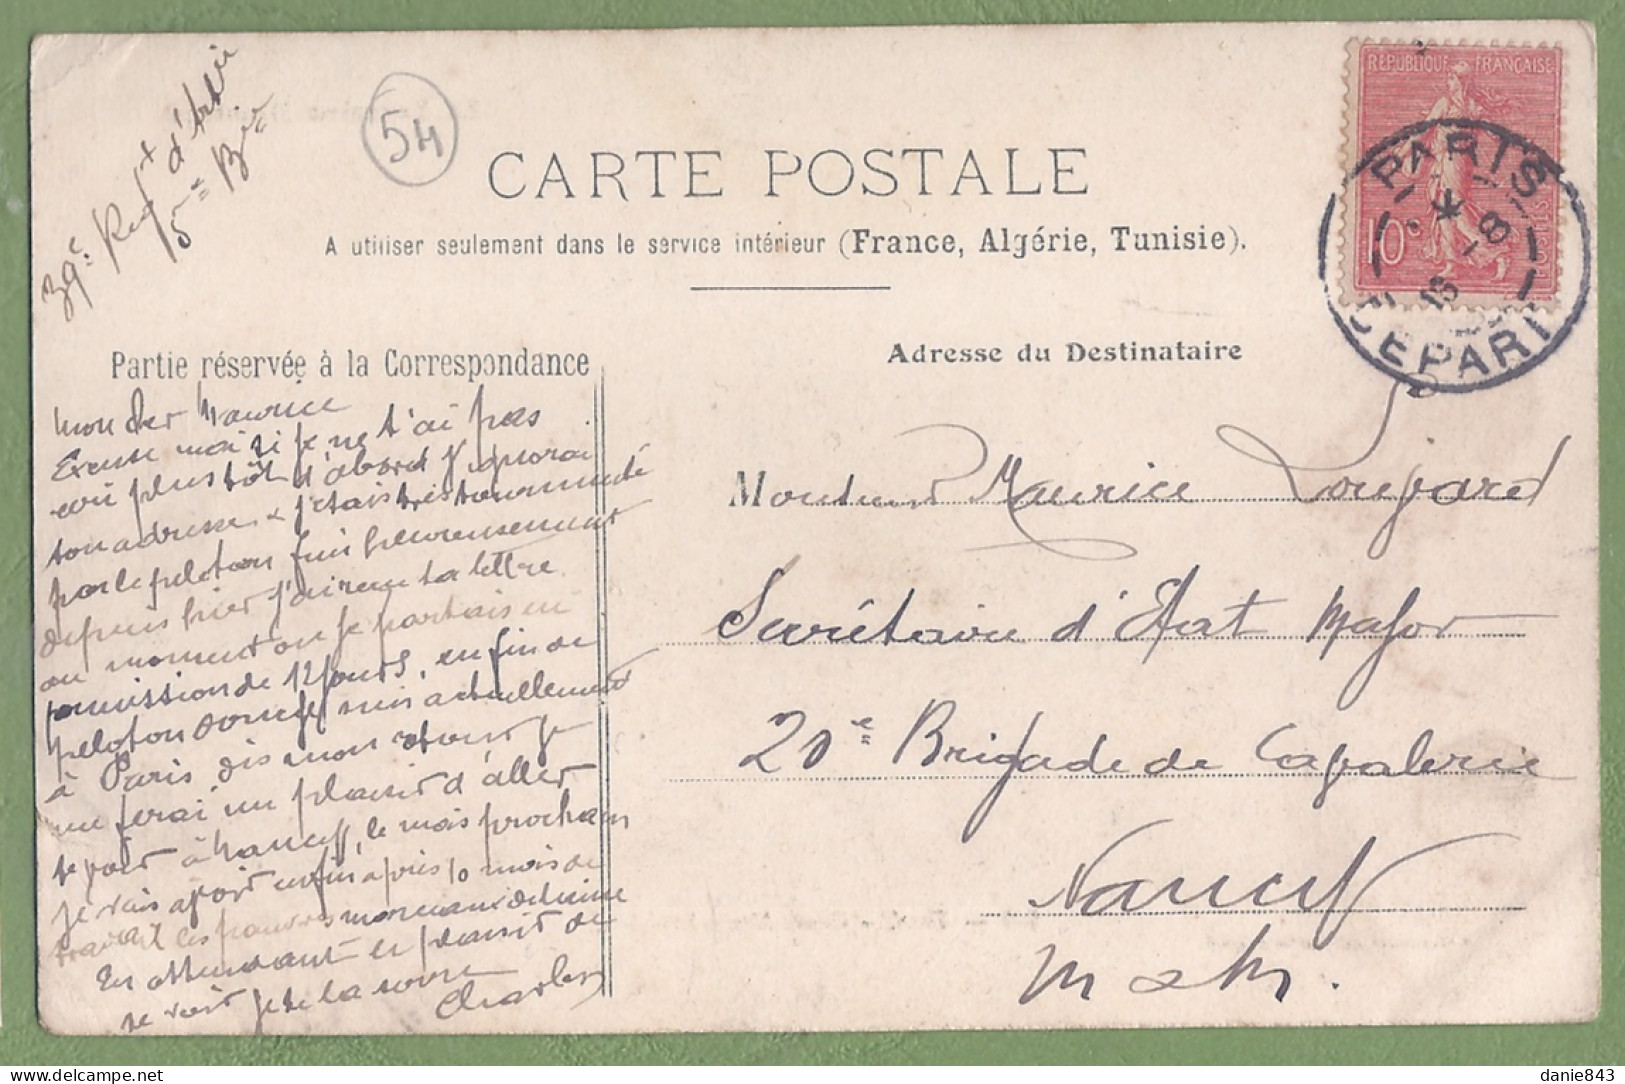 39e Regt d'Art ie
5e Bie
54
CARTE POSTALE
A utiliser seulement dans le service intérieur (France, Algérie, Tunisie).
REPUBLIQUE FRANÇAISE
10c
POSTES
PARIS
* 8
16
DEPART
Partie réservée à la Correspondance
Adresse du Destinataire
Mon cher Maurice
Excuse moi si je ne t'ai pas
écrit plus tôt d'abord j'ignorai
ton adresse & j'étais très tourmenté
par le peloton fini heureusement
depuis hier j'ai reçu ta lettre
au moment où je partais en
permission de 12 jours, enfin de
peloton donc je suis actuellement
à Paris dès mon retour je
me ferai un plaisir d'aller
te voir à Nancy, le mois prochain
je vais avoir enfin après 10 mois de
travail les pauvres morceaux de laine
En attendant le plaisir de
te voir je te la serre
Charles
Monsieur Maurice Loujard
Secrétaire d'Etat Major
20e Brigade de Cavalerie
Nancy
M & M.
danie843